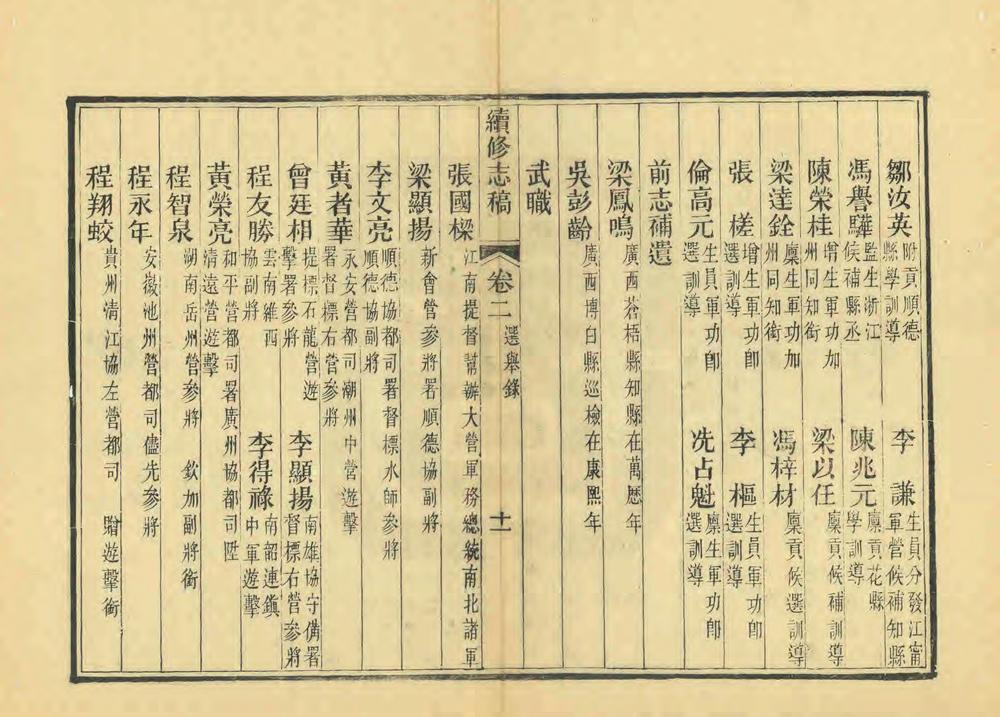 鄒汝英 附貢順德縣學訓導 李謙 生員分發江甯軍營候補知縣
馮譽驊 監生浙江候補縣丞 陳兆元 廩貢花縣學訓導
陳榮桂 增生軍功加州同知銜 梁以任 廩貢候補訓導
梁達銓 廩生軍功加州同知銜 馮梓材 廩貢候選訓導
張槎 增生軍功卽選訓導 李樞 生員軍功卽選訓導
倫高元 生員軍功卽選訓導 冼占魁 廩生軍功卽選訓導
前志補遺
梁鳳鳴 廣西蒼梧縣知縣在萬歷年
吳彭齡 廣西博白縣巡檢在康熙年
武職
續修志稿 卷二 選舉錄 十一
張國樑 江南提督幫辦大營軍務總統南北諸軍
梁顯揚 新會營參將署順德協副將
李文亮 順德協都司署督標水師參將順德協副將
黃者華 永安營都司潮州中營遊擊署督標右營參將
曾廷相 提標石龍營遊擊署參將 李顯揚 南雄協守備署督標右營參將
程友勝 雲南維西協副將 李得祿 南韶連鎮中軍遊擊
黃榮亮 和平營都司署廣州協都司陞清遠營遊擊
程智泉 湖南岳州營參將 欽加副將銜
程永年 安徽池州營都司儘先參將
程翔蛟 貴州清江協左營都司 贈遊擊銜